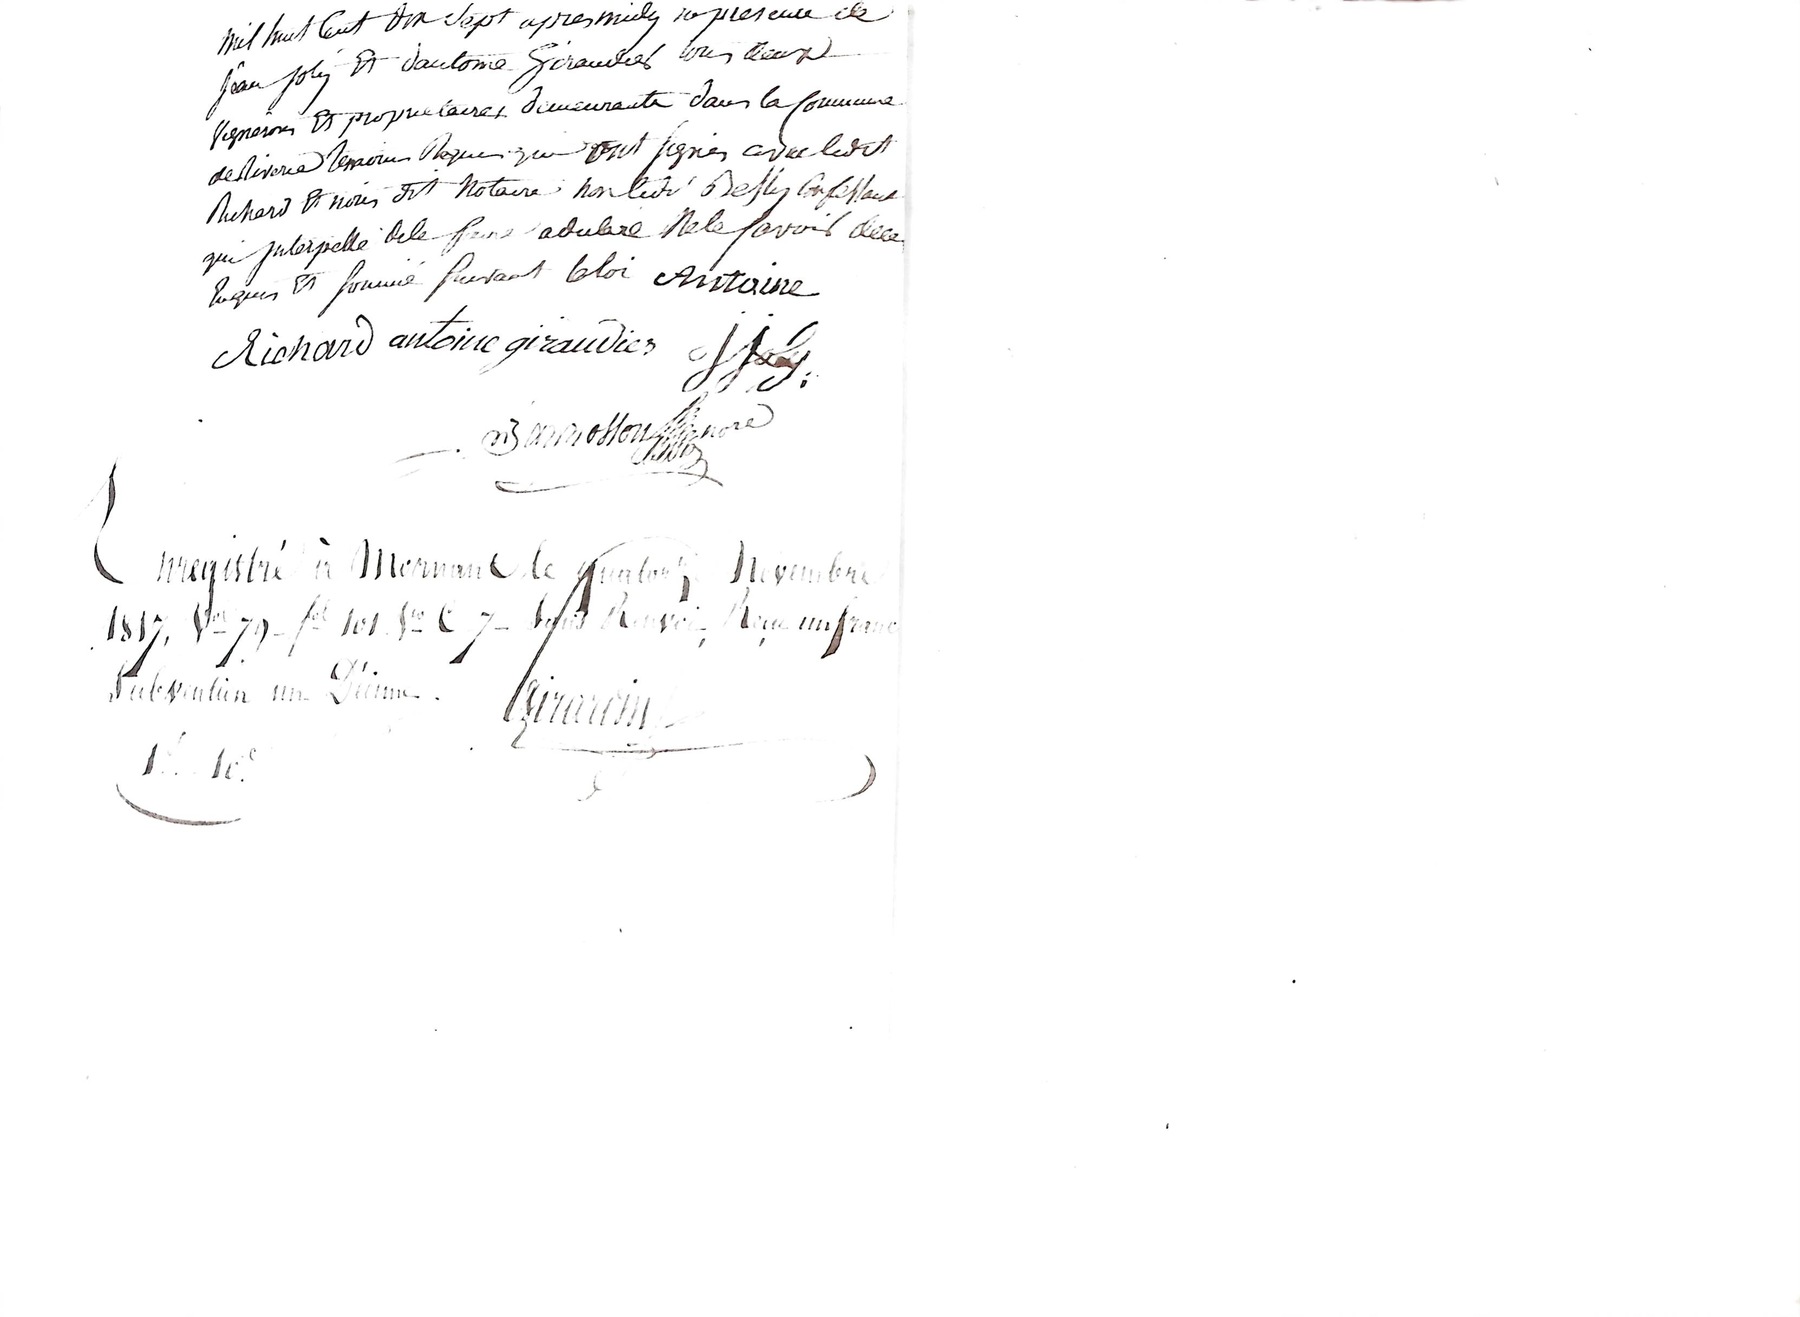 mil huit Cent dix Sept apres midy en presence de
jean joly Et dantoine Giraudier tous deux
vignerons Et proprietaires demeurants dans la Commune
de Riverie temoins Requis qui ont signés avec ledit
Richard Et nous dit Notaire non ledit Confessant
qui jnterpellé de le faire a declaré Ne le savoir dece
Requis Et sommé suivant la loi Antoine
Richard antoine giraudier J Joly
nore
Enregistré à Mornant le quatorze Novembre
1817, Vol 79 fol 101 Vo C 7 sans Renvoi, Reçu un franc
Subvention un Décime.
Girardin
1f. 10c